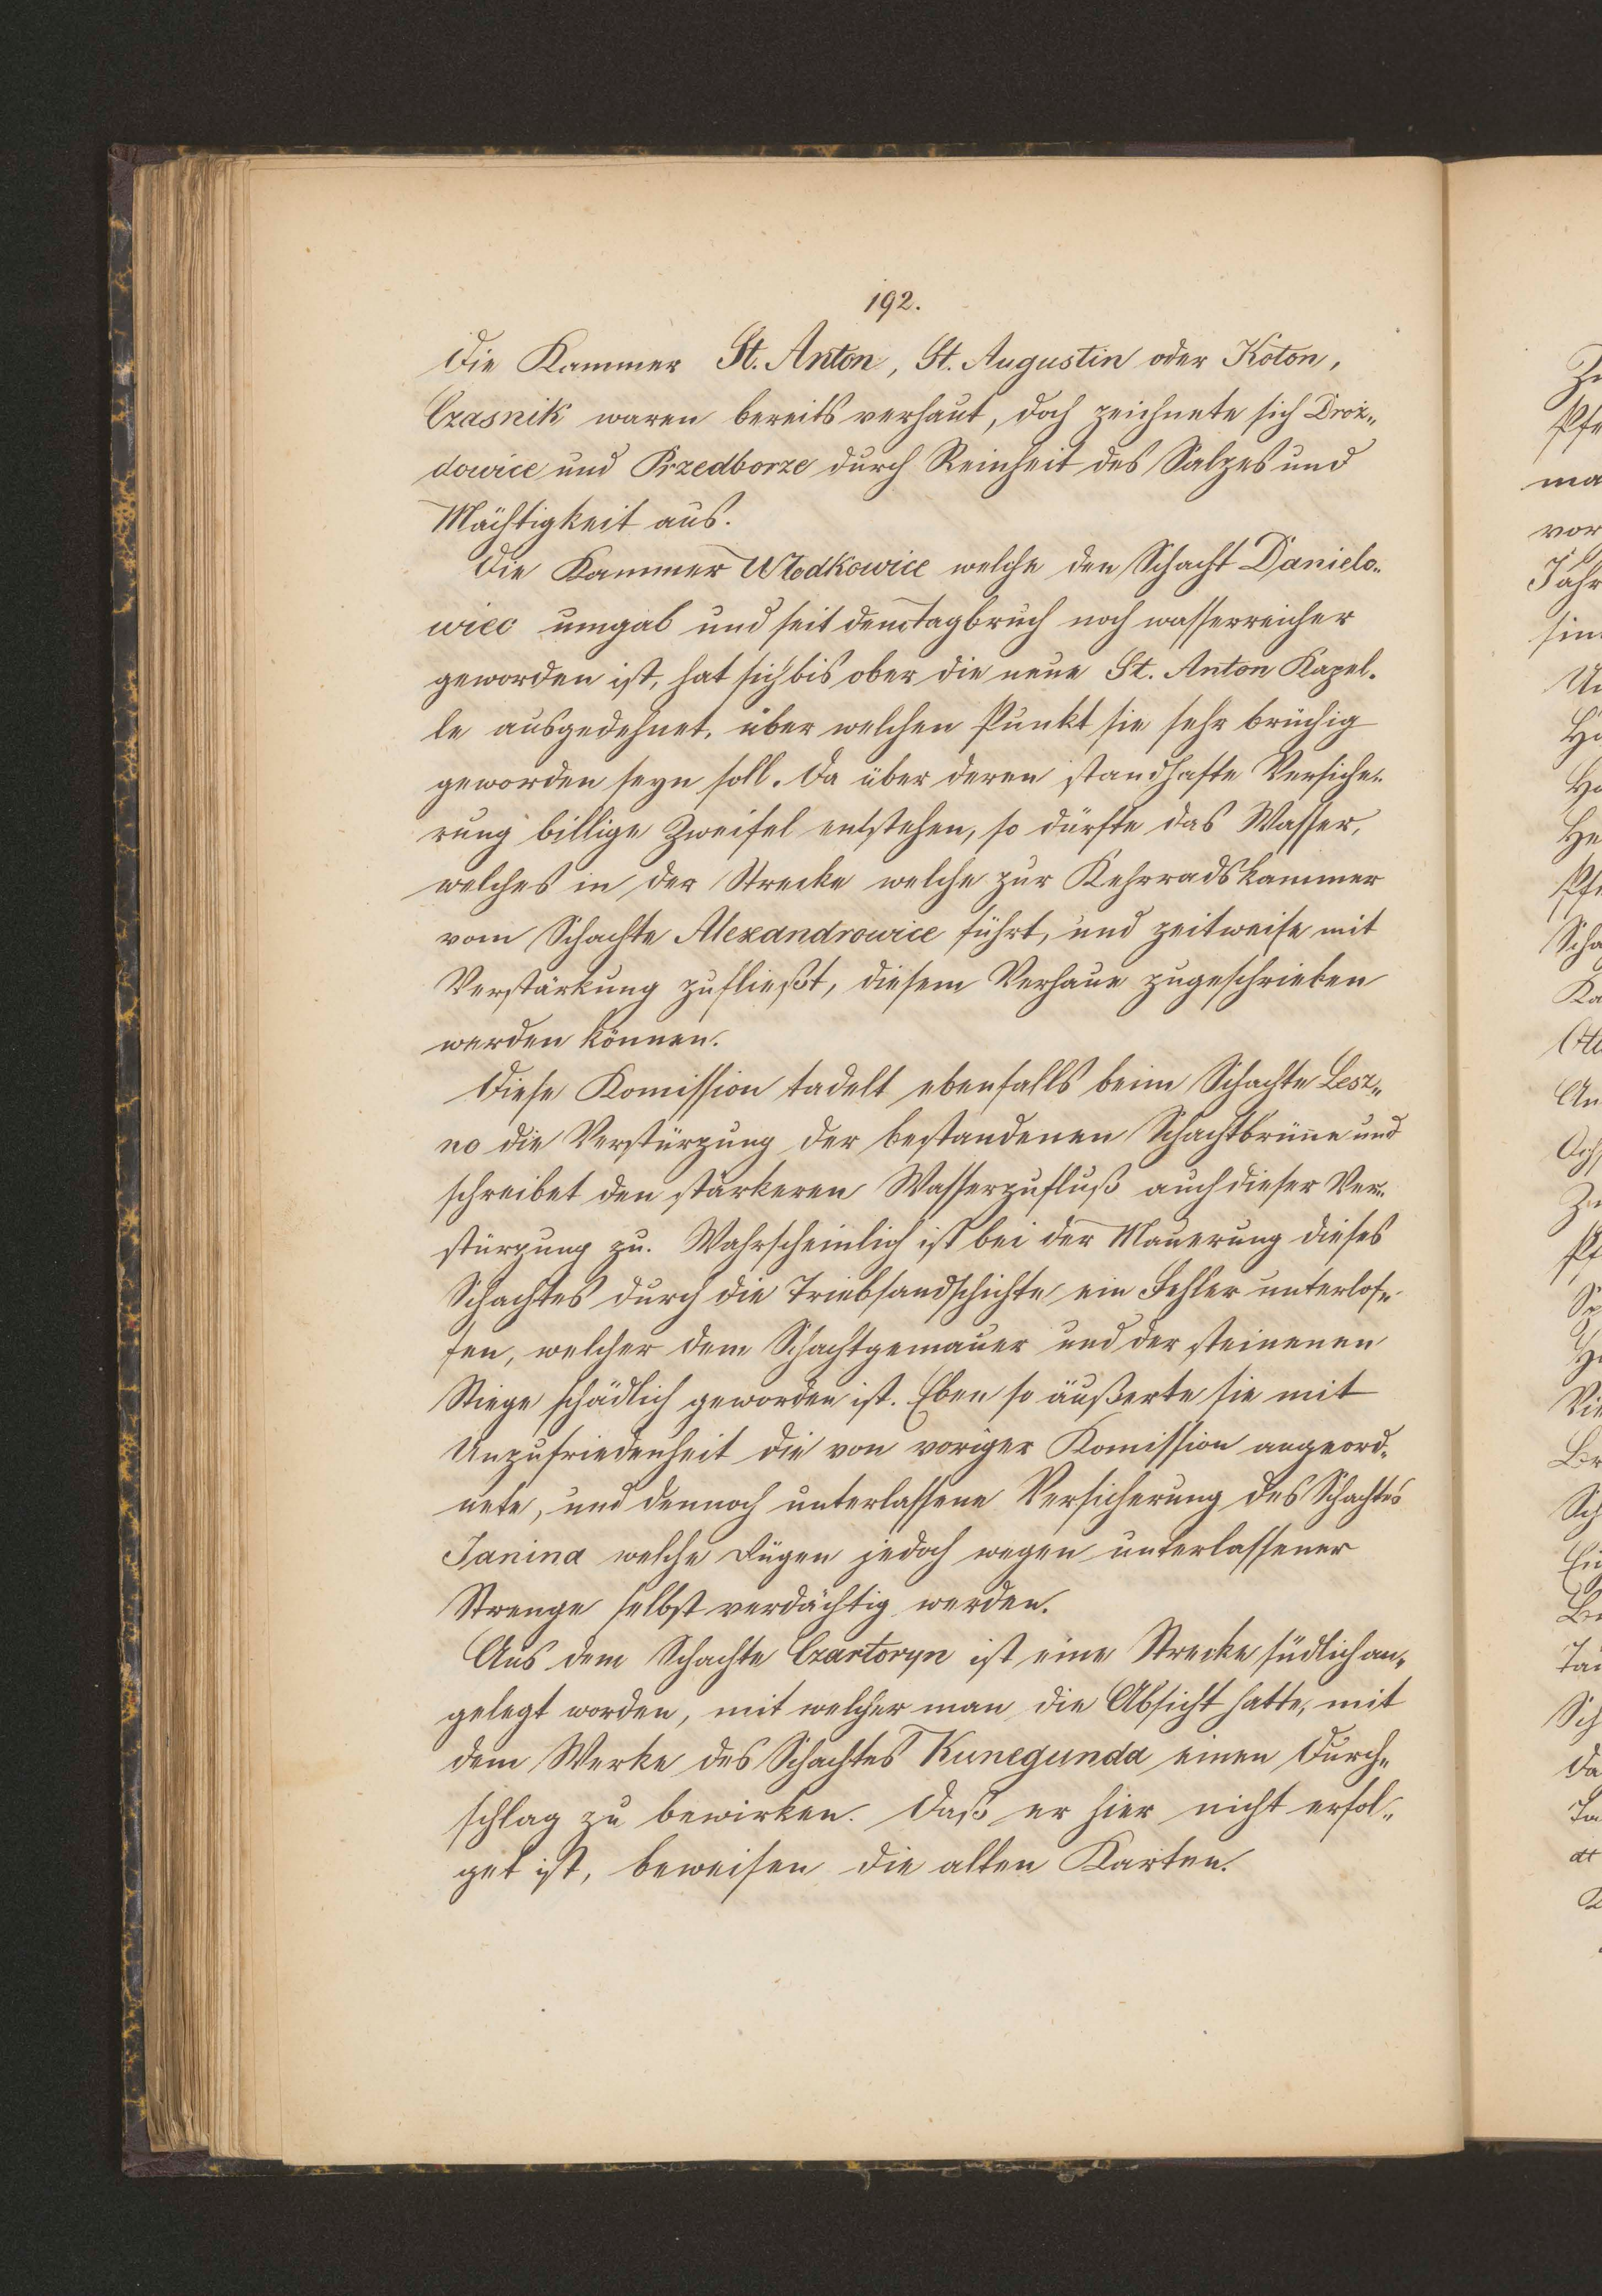 192.
Die Kammer St. Anton, St. Augustin oder Koton,
Czasnik waren bereits verhaut, doch zeichnete sich Droż„
dowice und Przedborze durch Reinheit des Salzes und
Mächtigkeit aus.
Die Kammer Włodkowice welche den Schacht Danielo„
wiec umgab und seit dem Tagbruch noch wasserreicher
geworden ist, hat sich bis ober die neue St. Anton Kapel„
le ausgedehnet, über welchen Punkt sie sehr brüchig
geworden seyn soll. Da über deren standhafte Versiche„
rung billige Zweifel entstehen, so dürfte das Wasser,
welches in der Strecke welche zur Kehrradskammer
vom Schachte Alexandrowice führt, und zeitweise mit
Verstärkung zufließt, diesem Verhaue zugeschrieben
werden können.
Diese Komission tadelt ebenfalls beim Schachte Lesz„
no die Verstürzung der bestandenen Schachtbrüne und
schreibet den stärkeren Wasserzufluß auch dieser Ver„
stürzung zu. Wahrscheinlich ist bei der Mauerung dieses
Schachtes durch die Triebsandschichte ein Fehler unterlof„
fen, welcher dem Schachtgemäuer und der steinenen
Stiege schädlich geworden ist. Eben so äußerte sie mit
Unzufriedenheit die von voriger Komission angeord„
nete, und dennoch unterlassene Versicherung des Schachtes
Janina welche Rügen jedoch wegen unterlassener
Strenge selbst verdächtig werden.
Aus dem Schachte Czartoryn ist eine Strecke südlich an„
gelegt worden, mit welcher man die Absicht hatte, mit
dem Werke des Schachtes Kunegunda einen Durch„
schlag zu bewirken. Daß er hier nicht erfol„
get ist, beweisen die alten Karten.